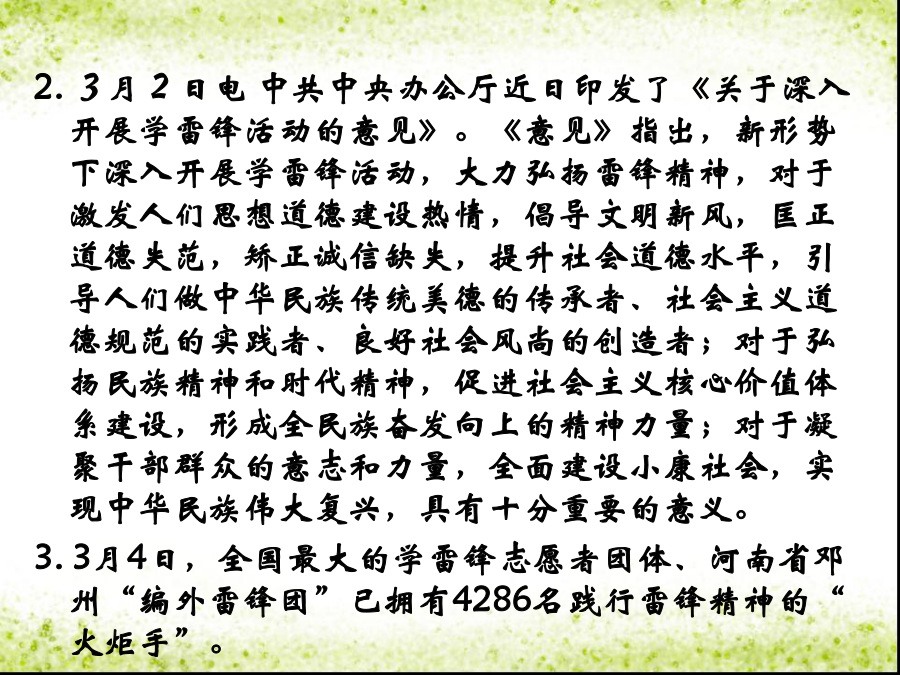 2. 3月2日电 中共中央办公厅近日印发了《关于深入
开展学雷锋活动的意见》。《意见》指出，新形势
下深入开展学雷锋活动，大力弘扬雷锋精神，对于
激发人们思想道德建设热情，倡导文明新风，匡正
道德失范，矫正诚信缺失，提升社会道德水平，引
导人们做中华民族传统美德的传承者、社会主义道
德规范的实践者、良好社会风尚的创造者；对于弘
扬民族精神和时代精神，促进社会主义核心价值体
系建设，形成全民族奋发向上的精神力量；对于凝
聚干部群众的意志和力量，全面建设小康社会，实
现中华民族伟大复兴，具有十分重要的意义。
3. 3月4日，全国最大的学雷锋志愿者团体、河南省邓
州“编外雷锋团”已拥有4286名践行雷锋精神的“
火炬手”。